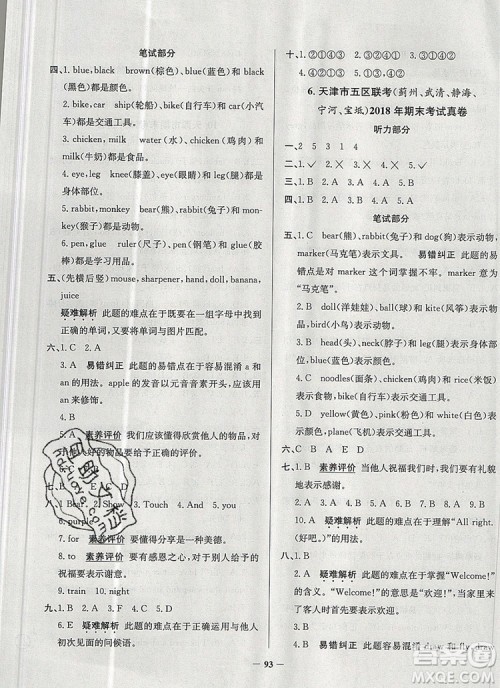 笔试部分
四、1. blue, black brown(棕色)、blue(蓝色)和 black
(黑色)都是颜色。
2. bike, car ship(轮船)、bike(自行车)和 car(小汽
车)都是交通工具。
3. chicken, milk water(水)、chicken(鸡肉)和
milk(牛奶)都是食品。
4. eye, leg knee(膝盖)、eye(眼睛)和 leg(腿)都是
身体部位。
5. rabbit, monkey bear(熊)、rabbit(兔子)和 mon-
key(猴子)都表示动物。
6. pen, glue ruler(尺子)、pen(钢笔)和 glue(胶
棒)都是学习用品。
五、(先横后竖)mouse, sharpener, hand, doll, banana,
juice
疑难解析 此题的难点在于在一组字母中找出正
确的单词,要将单词与图片匹配。
六、1. C 2. A
3. A 易错纠正 此题的易错点在于容易混淆 a 和
an 的用法。apple 的发音是元音音素开头,应该用
an 来修饰。
4. B
5. A 素养评价 我们应该懂得欣赏他人的物品,
对他人好的物品要给予正确的评价。
八、1. Bear 2. Show 3. Touch 4. and
5. purple
6. for 素养评价 要懂得分享是一种美德。
7. to 素养评价 要有感恩之心,对于别人给予的
祝福要表示谢意。
9. train 10. night
九、1. B 2. C 3. D 4. A
5. E 疑难解析 此题的难点在于如何运用与他人
初次见面的问候语。
十、1. ②①④③ 2. ②①④③ 3. ①③②④
4. ①③②④ 5. ①②④③
6. 天津市五区联考(蓟州、武清、静海、
宁河、宝坻)2018 年期末考试真卷
听力部分
一、2 5 3 1 4
三、1. B 2. A 3. A 4. B 5. A
笔试部分
五、1. B bear(熊)、rabbit(兔子)和 dog(狗)表示动
物, marker(马克笔)表示文具。 易错纠正 此题的易
错点是对 marker 这个词掌握不牢。marker 意为
“马克笔”。
2. B doll(洋娃娃)、ball(球)和 kite(风筝)表示玩
具, bird(小鸟)表示动物。
3. A head(头)、neck(脖子)和 foot(脚)表示身体
部位, bus(公共汽车)表示交通工具。
4. C noodles(面条)、chicken(鸡肉)和 rice(米饭)
表示食物, two(二)表示数字。
5. D yellow(黄色)、pink(粉色)和 white(白色)表
示颜色, plane(飞机)表示交通工具。
六、B A E C D
七、1. B 素养评价 当他人祝福我们时,我们要礼貌地
表示感谢。
2. B 疑难解析 此题的难点在于要理解“All right.
(好吧。)”的意思。
3. A
4. A 疑难解析 此题的难点在于掌握“Welcome!”
的含义。“Welcome!”的意思是“欢迎!”,当家里
来了客人时,我们应表示欢迎。
5. B 易错纠正 此题容易混淆 draw 和 fly, draw
93